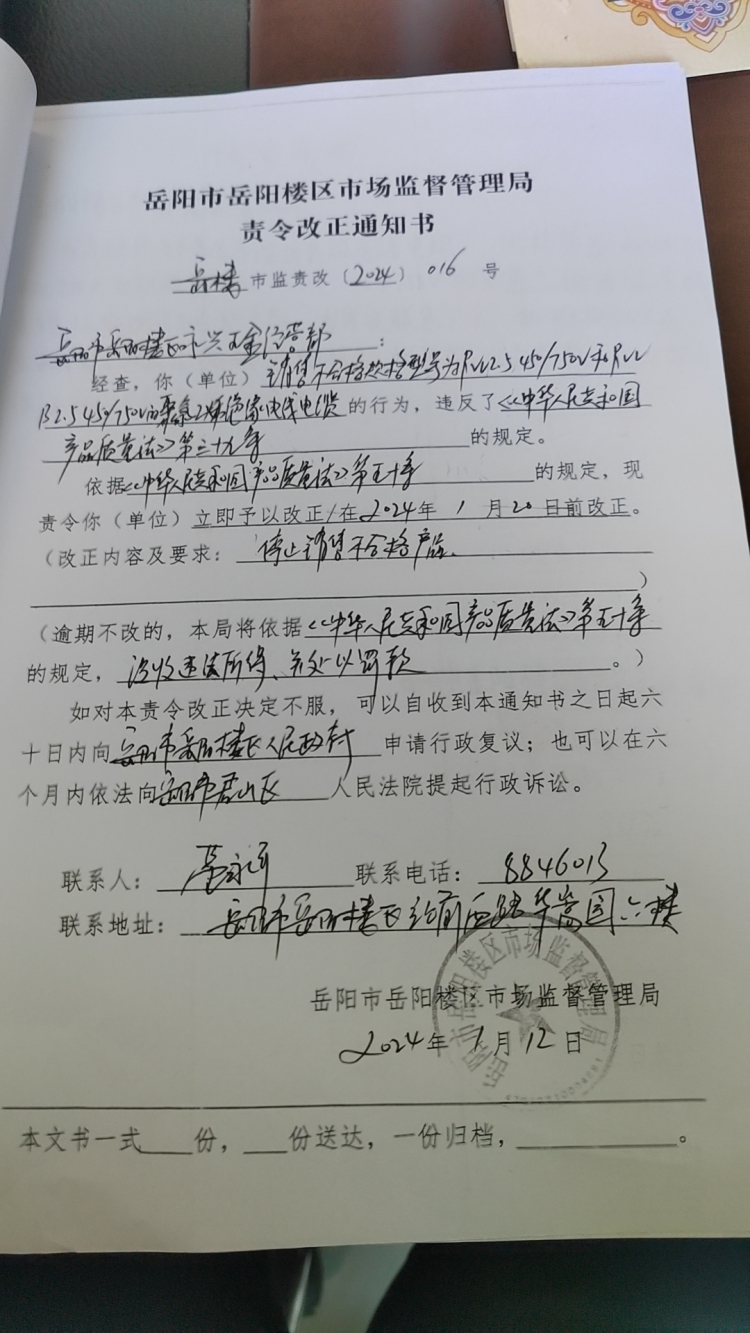 岳阳市岳阳楼区市场监督管理局
责令改正通知书
岳楼 市监责改〔2024〕016 号
岳阳市岳阳楼区永兴五金经营部:
经查,你(单位)销售不合格规格型号为RVV2.5 450/750V和RVV
B2.5 450/750V的聚氯乙烯绝缘电线电缆的行为,违反了《中华人民共和国
产品质量法》第三十九条的规定。
依据《中华人民共和国产品质量法》第五十条的规定,现
责令你(单位)立即予以改正/在2024年1月20日前改正。
(改正内容及要求:停止销售不合格产品。
)
(逾期不改的,本局将依据《中华人民共和国产品质量法》第五十条
的规定,没收违法所得、并处以罚款。)
如对本责令改正决定不服,可以自收到本通知书之日起六
十日内向岳阳市岳阳楼区人民政府申请行政复议;也可以在六
个月内依法向岳阳市君山区人民法院提起行政诉讼。
联系人: 联系电话:8846013
联系地址:岳阳市岳阳楼区 六楼
岳阳市岳阳楼区市场监督管理局
2024年1月12日
岳阳市岳阳楼区市场监督管理局
本文书一式 份, 份送达,一份归档, 。